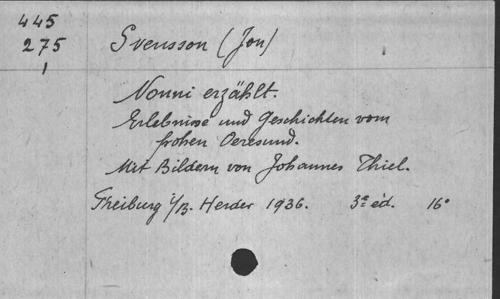 445
275
1
Svensson (Jon)
Nonni erzählt.
Erlebnisse und Geschichten vom
frohen Oeresund.
Mit Bildern von Johannes Thiel.
Freiburg i/B. Herder 1936. 3e éd. 16°